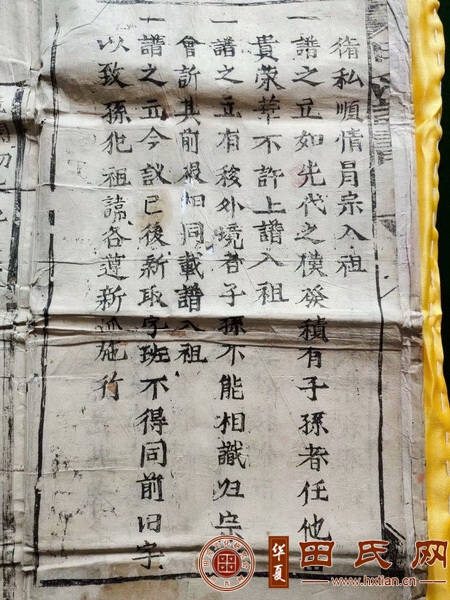 私順情冐宗入祖
一譜之立如先代之僕發積有子孫者任他
貴榮華不許上譜入祖
一譜之立有移外境者子孫不能相識归宗
會許其前根相同載譜入祖
一譜之立今議已後新取字班不得同前旧字
以致孫犯祖諱各遵新派施行
华夏
田氏网
www.hxtian.cn